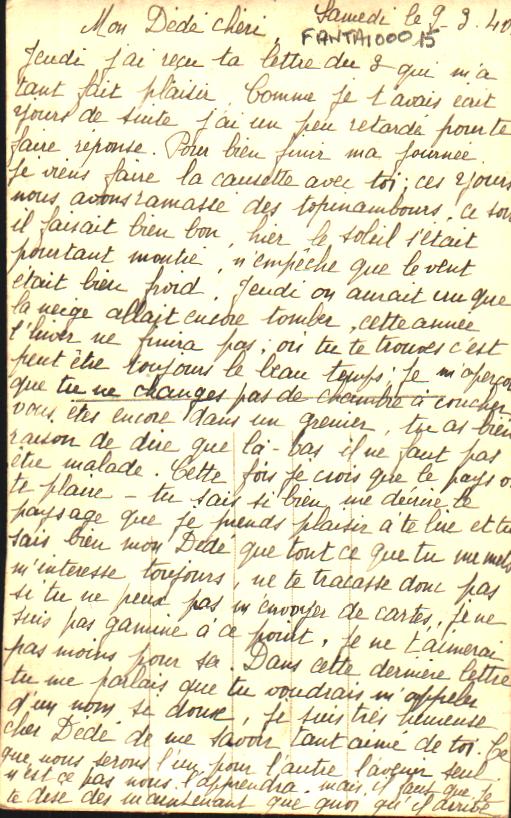 Samedi le 9.3.40
Mon Dédé chéri,
FANTAIOOO15
Jeudi j'ai reçu ta lettre du 3 qui m'a
tant fait plaisir. Comme je t'avais écrit
de suite j'ai un peu retardé pour te
faire réponse. Pour bien finir ma journée
Je viens faire la causette avec toi; ces 2 jours
nous avons ramassé des topinambours, ce soir
il faisait bien bon, hier le soleil s'était
pourtant montré, n'empêche que le vent
était bien froid. Jeudi on aurait cru que
la neige allait encore tomber, cette année
l'hiver ne finira pas; où tu te trouves c'est
peut être toujours le beau temps, Je m'aperçoi
que tu ne changes pas de chambre à coucher,
vous êtes encore dans un grenier, tu as bien
raison de dire que là-bas il ne faut pas
être malade. Cette fois je crois que le pays
te plaire - tu sais si bien me décrire le
paysage que je prends plaisir à te lire et tu
sais bien mon Dédé que tout ce que tu me mets
m'intéresse toujours, ne te tracasse donc pas
si tu ne peux pas m'envoyer de cartes, je ne
suis pas gamine à ce point, je ne t'aimerai
pas moins pour sa. Dans cette dernière lettre
tu me parlais que tu voudrais m'appeler
d'un nom si doux, Je suis très heureuse
cher Dédé de me savoir tant aimé de toi. Ce
que nous serons l'un pour l'autre l'avenir seul
n'est ce pas nous l'apprendra, mais il faut que je
te dise dès maintenant que quoi qu'il arrive